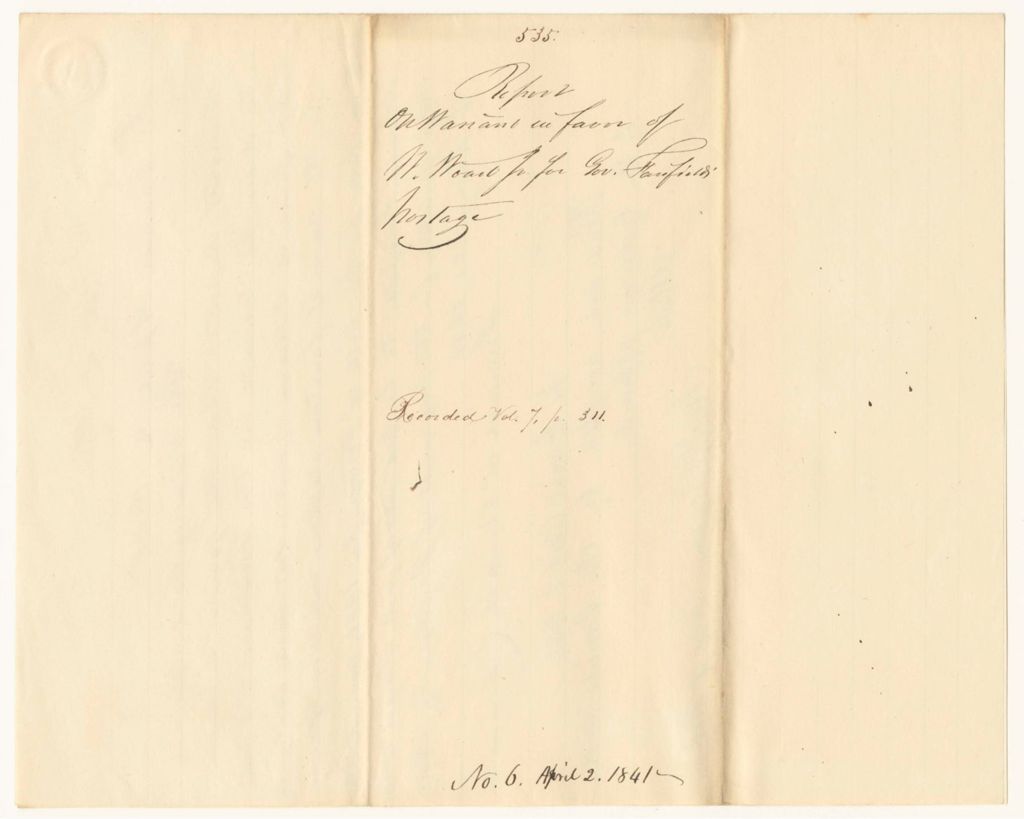 535.
Report
On Warrant in favor of
W. Woart Jr. for Gov. Fairfield's
postage
Recorded Vol. 7, p. 311.
No. 6. April 2. 1841